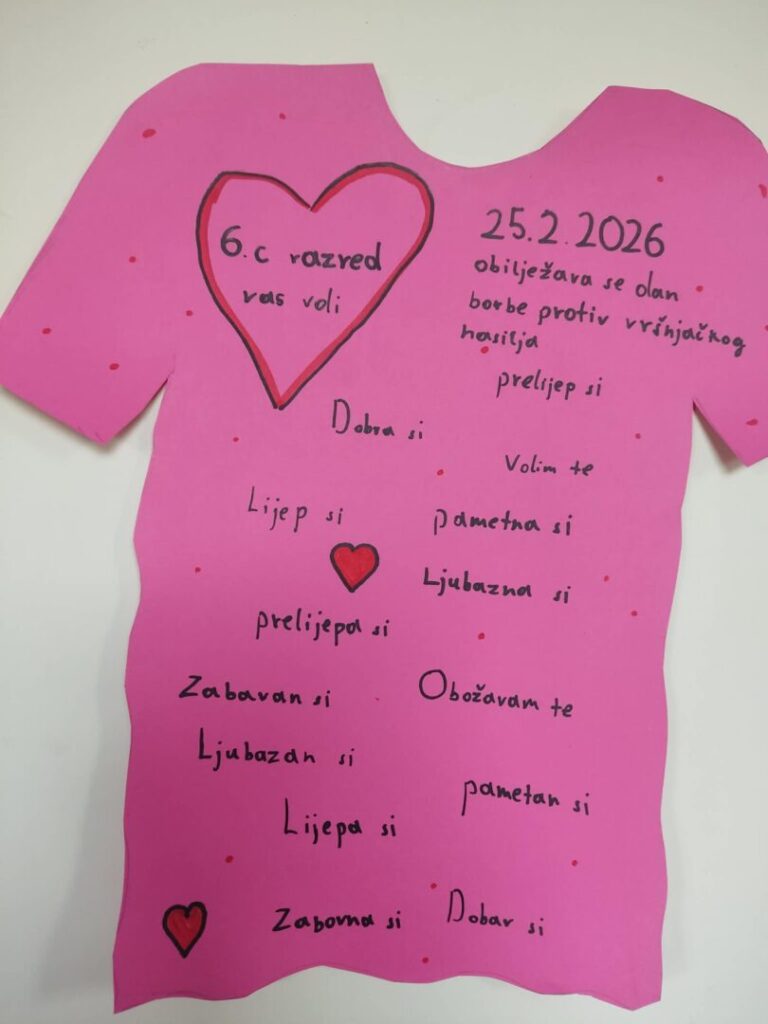 6. c razred
vas voli
25.2.2026
obilježava se dan
borbe protiv vršnjačkog
nasilja
prelijep si
Dobra si
Volim te
Lijep si
pametna si
Ljubazna si
prelijepa si
Zabavan si
Obožavam te
Ljubazan si
pametan si
Lijepa si
Zabovna si
Dobar si